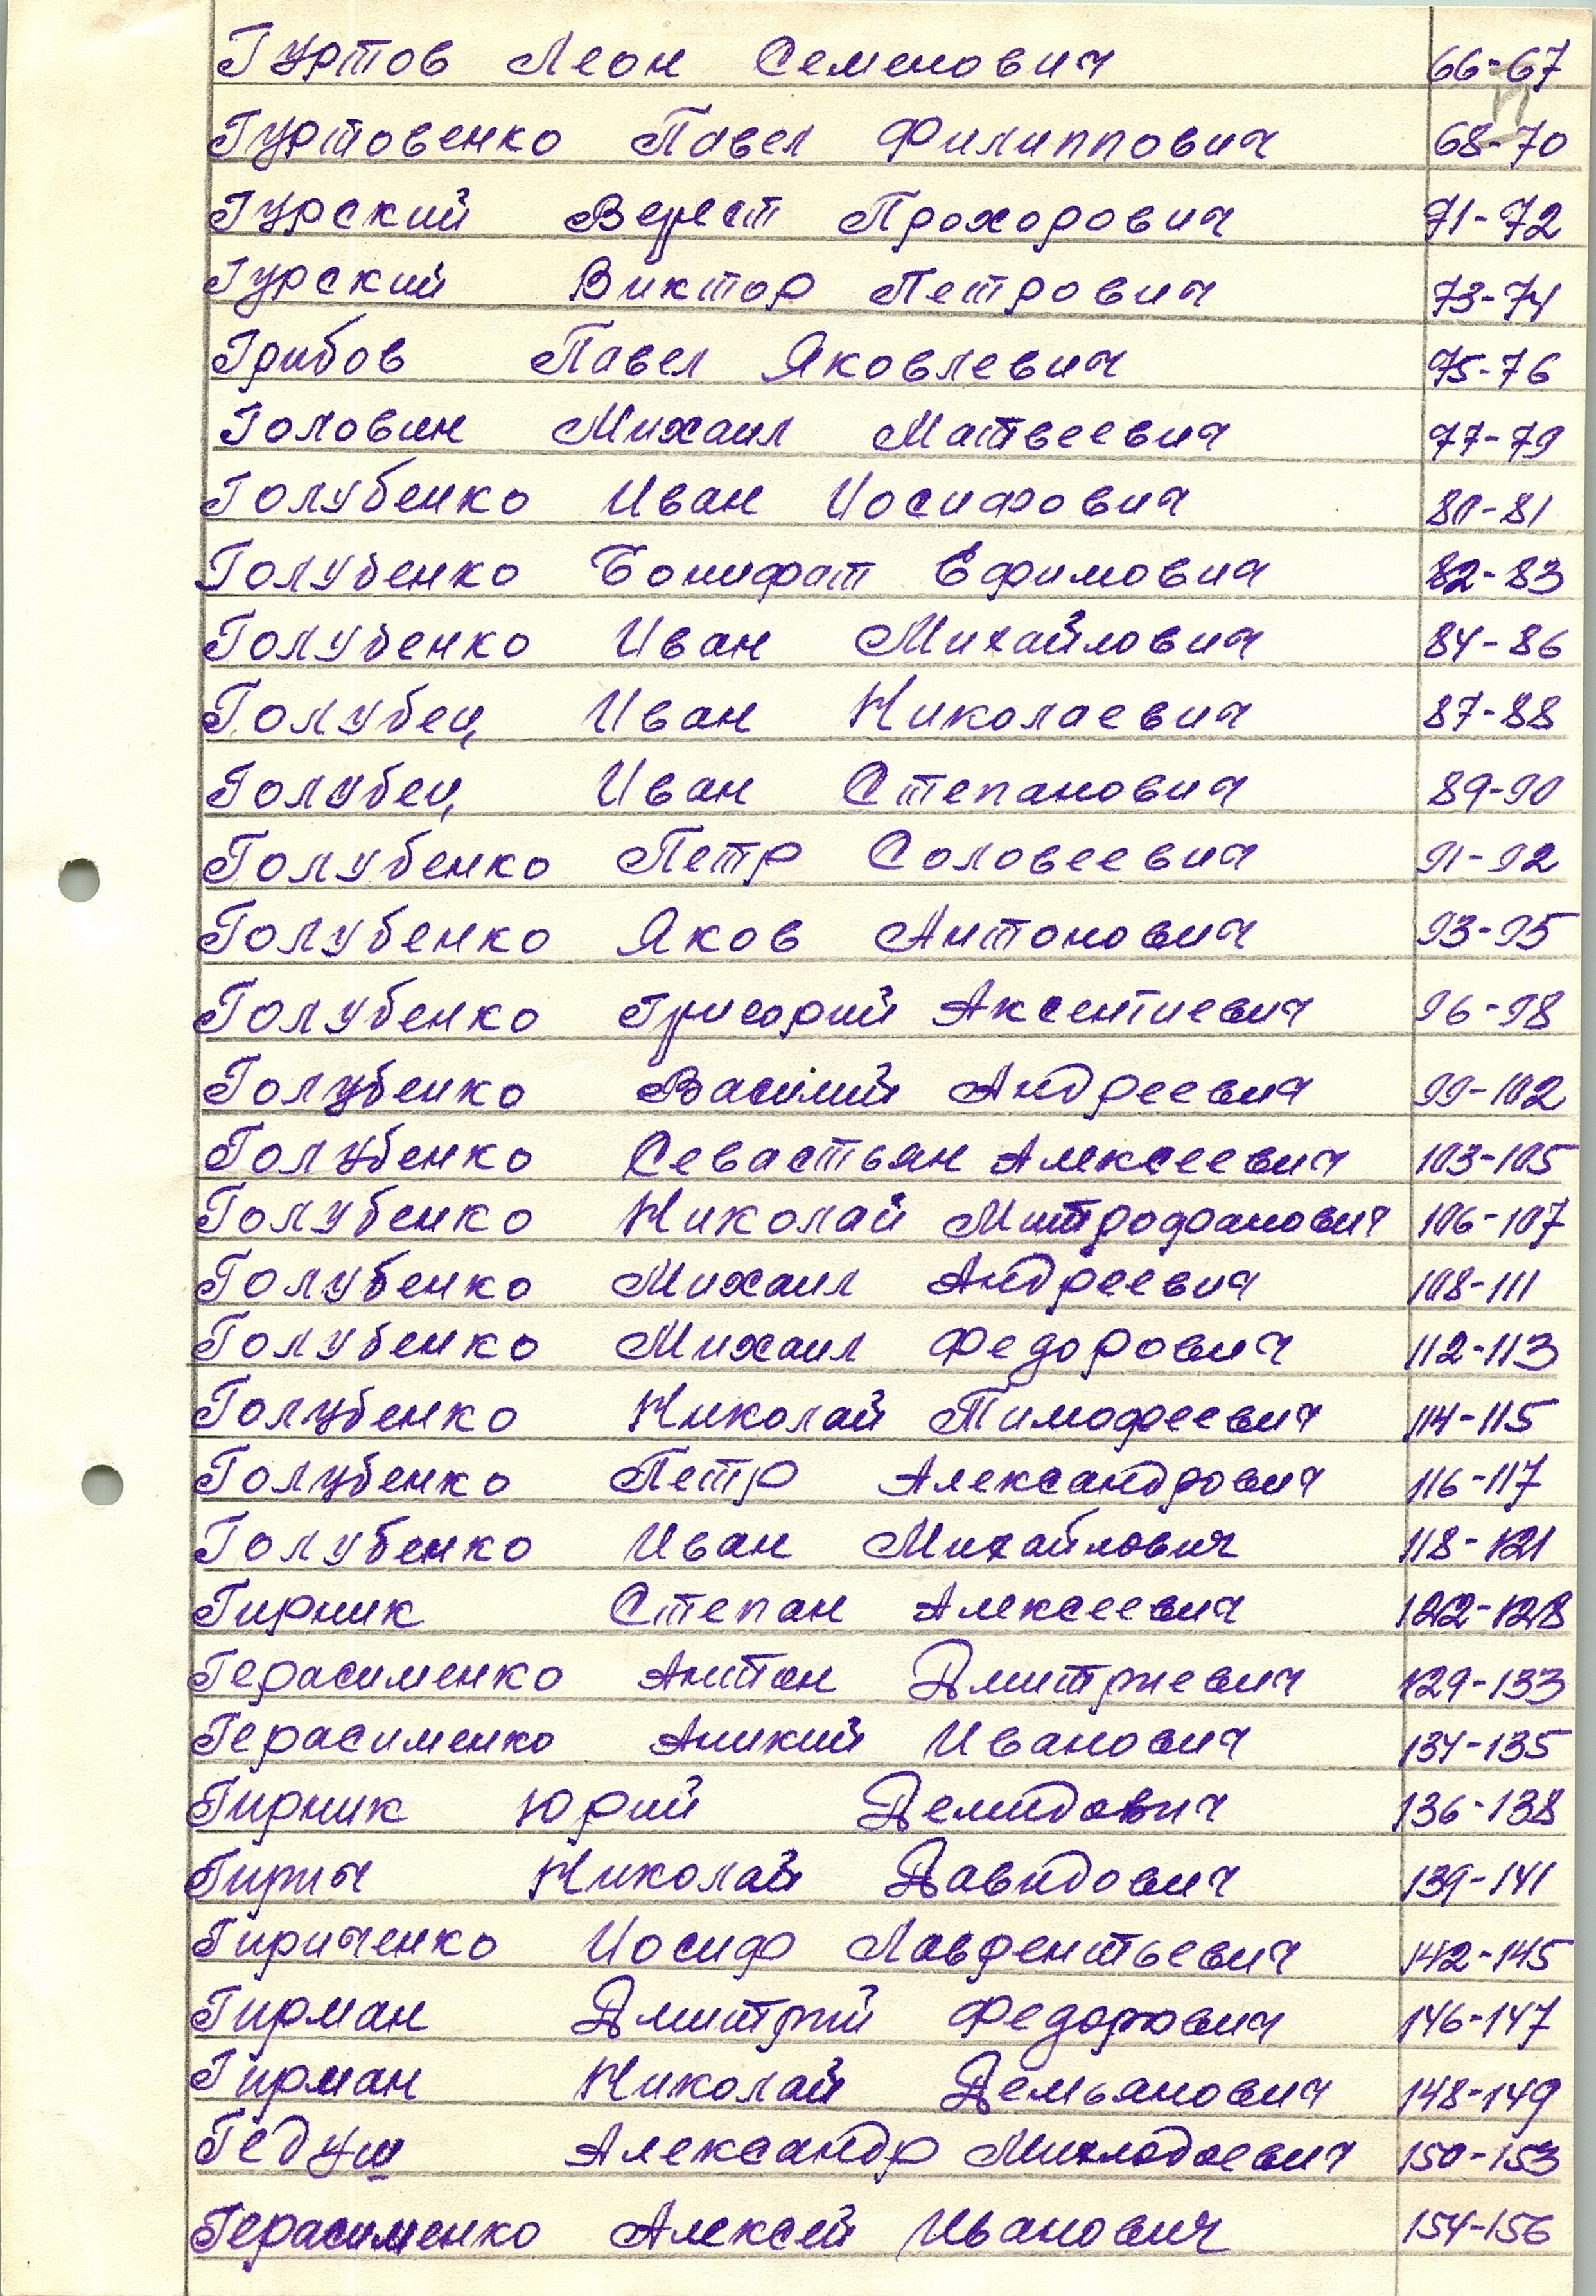 Гуртов Леон Семенович 66-67
Гуртовенко Павел Филиппович 68-70
Гурский Верест Прохорович 71-72
Гурский Виктор Петрович 73-74
Грибов Павел Яковлевич 75-76
Головин Михаил Матвеевич 77-79
Голубенко Иван Иосифович 80-81
Голубенко Бонифат Ефимович 82-83
Голубенко Иван Михайлович 84-86
Голубец Иван Николаевич 87-88
Голубец Иван Степанович 89-90
Голубенко Петр Соловеевич 91-92
Голубенко Яков Антонович 93-95
Голубенко Григорий Аксентиевич 96-98
Голубенко Василий Андреевич 99-102
Голубенко Севастьян Алексеевич 103-105
Голубенко Николай Митрофанович 106-107
Голубенко Михаил Андреевич 108-111
Голубенко Михаил Федорович 112-113
Голубенко Николай Тимофеевич 114-115
Голубенко Петр Александрович 116-117
Голубенко Иван Михайлович 118-121
Гирник Степан Алексеевич 122-128
Герасименко Антон Дмитриевич 129-133
Герасименко Аникий Иванович 134-135
Гирник Юрий Демидович 136-138
Гирич Николай Давидович 139-141
Гириченко Иосиф Лаврентьевич 142-145
Гирман Дмитрий Федорович 146-147
Гирман Николай Демьянович 148-149
Гедуш Александр 150-153
Герасименко Алексей Иванович 154-156